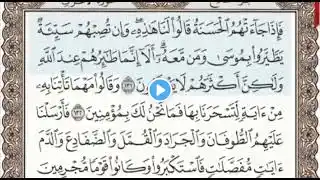 فَإِذَا جَآءَتۡهُمُ ٱلۡحَسَنَةُ قَالُوا۟ لَنَا هَٰذِهِۦۖ وَإِن تُصِبۡهُمۡ سَيِّئَةٞ
يَطَّيَّرُوا۟ بِمُوسَىٰ وَمَن مَّعَهُۥٓۗ أَلَآ إِنَّمَا طَٰٓئِرُهُمۡ عِندَ ٱللَّهِ
وَلَٰكِنَّ أَكۡثَرَهُمۡ لَا ١٣١ وَقَالُوا۟ مَهۡمَا تَأۡتِنَا بِهِۦ
مِنۡ ءَايَةٖ لِّتَسۡحَرَنَا بِهَا فَمَا نَحۡنُ لَكَ بِمُؤۡمِنِينَ ١٣٢ فَأَرۡسَلۡنَا
عَلَيۡهِمُ ٱلطُّوفَانَ وَٱلۡجَرَادَ وَٱلۡقُمَّلَ وَٱلضَّفَادِعَ وَٱلدَّمَ
ءَايَٰتٖ مُّفَصَّلَٰتٖ فَٱسۡتَكۡبَرُوا۟ وَكَانُوا۟ قَوۡمٗا مُّجۡرِمِينَ